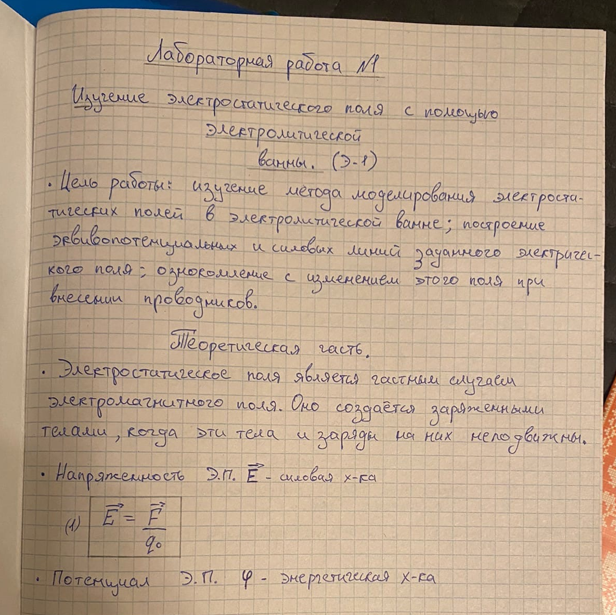 Лабораторная работа №1
Изучение электростатического поля с помощью
электролитической
ванны. (Э-1)
• Цель работы: изучение метода моделирования электроста-
тических полей в электролитической ванне; построение
эквивопотенциальных и силовых линий заданного электричес-
кого поля; ознокомление с изменением этого поля при
внесении проводников.
Теоретическая часть.
• Электростатическое поля является частным случаем
электромагнитного поля. Оно создаётся заряженными
телами, когда эти тела и заряды на них неподвижны.
• Напряженность Э.П. E⃗ - силовая х-ка
(1) E⃗ = F⃗/q₀
• Потенциал Э.П. φ - энергетическая х-ка